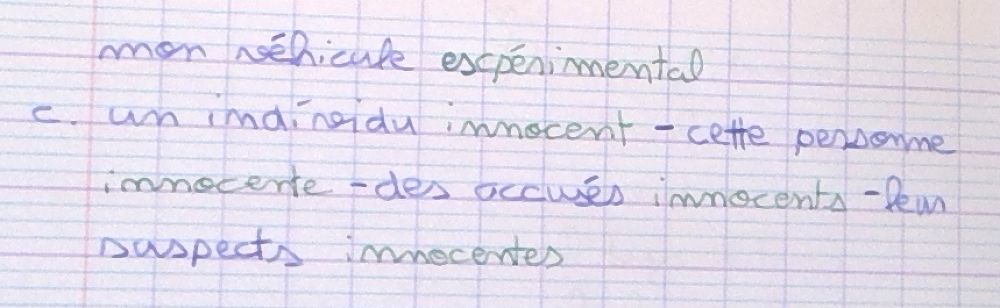 mon véhicule escpérimental
c. un individu innocent - cette personne
innocente - des accusés innocents - leur
suspects innocentes